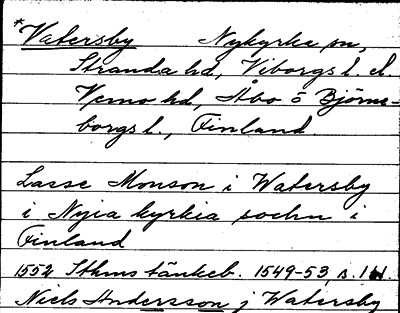 *Vatersby Nykyrka sn,
Stranda hd, Viborgs l. el.
Vemo hd, Åbo o Björne-
borgs l., Finland
Lasse Monson i Watersby
i Nyia kyrkia sochn i
Finland
1552 Sthms tänkeb. 1549-53, s.
Niels Andersson j Watersby